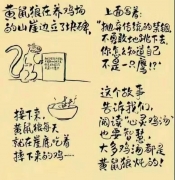 黄鼠狼在养鸡场
的山崖边立了块碑，
上面写着：
“抛弃传统的禁锢
不勇敢地跳下去，
你怎么知道自己
不是一只鹰!?”
接下来，
黄鼠狼每天
就在崖底吃着
摔下来的鸡……
这个故事
告诉我们，
阅读“心灵鸡汤”
也要智慧，
大多鸡汤都是
黄鼠狼炖的!